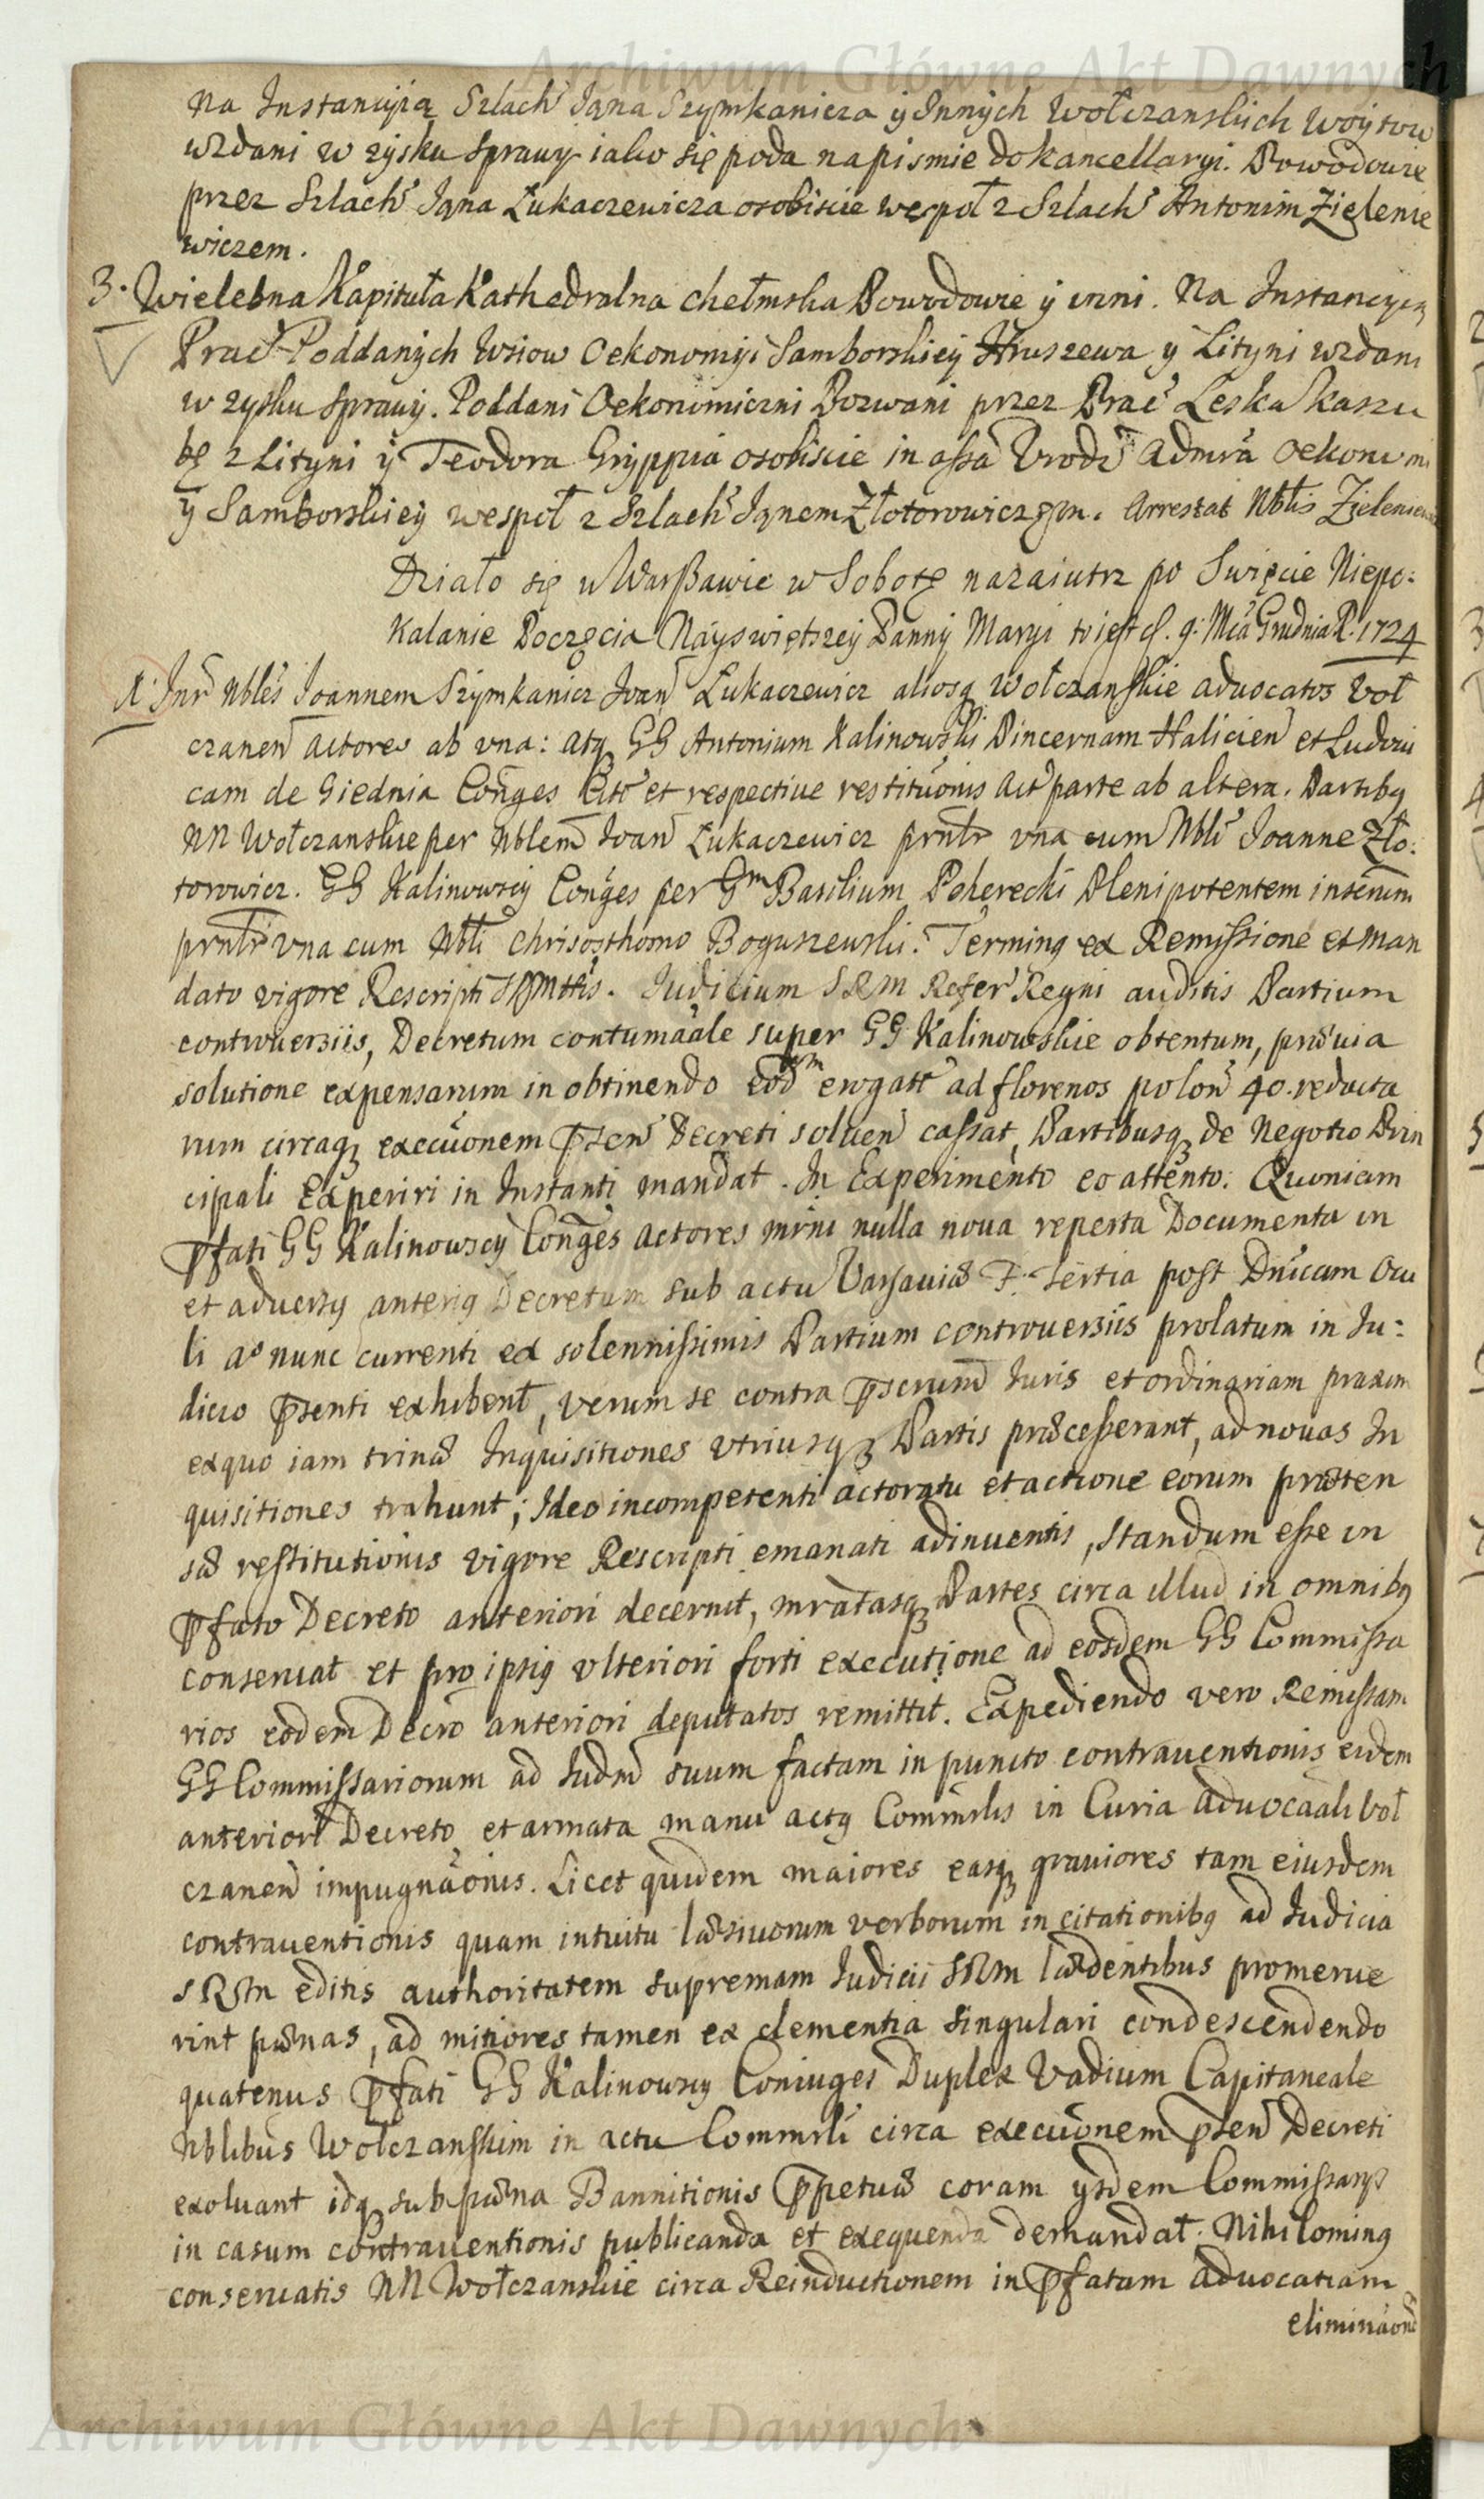 Archiwum Główne Akt Dawnych
Na Instancyią Szlach Jana Szymkanicza y Innych Wołczanskich Woytow
wzdani w zysku sprawy iako się poda na pismie do kancellaryi. Powodowie
przez Szlach Jana Łukaczewicza osobiscie wespoł z Szlach Antonim Zielenie
wiczem.
3. Wielebna Kapituła Kathedralna Chełmska Powodowie y inni. Na Instancyą
Prac Poddanych Wsiow Oekonomyi Samborskiey Hruszewa y Lityni wzdani
w zysku sprawy. Poddani Oekonomiczni Pozwani przez Prac Leska Kaszu
bę z Lityni y Teodora Gryppia osobiscie in assa Vrodz Admra Oekonomi
y Samborskiey wespoł z Szlach Janem Złotorowiczem. Arrestat Nblis Zieleniew
Działo się w Warszawie w Sobotę nazaiutrz po Swięcie Niepo:
kalanie Poczęcia Nayswiętszey Panny Maryi to iest d. 9. Mca Grudnia R. 1724
Inr Nbles Joannem Szymkanicz Ivan Łukaczewicz aliosq Wołczanskie aduocatos Voł
czanen actores ab vna: atq GG Antonium Kalinowski Pincernam Halicien et Ludoui
cam de Giednia Conges Cito et respectiue restituonis Act parte ab altera. Partibq
NN Wołczanskie per Nblem Ivan Łukaczewicz prntr vna cum Nbli Joanne Zło:
torowicz. GG Kalinowscy Conges per Gm Basilium Peherecki Plenipotentem insenum
prntr vna cum Nbli Chrisosthomo Boguszewski. Terminq ex Remissione et man
dato vigore Rescripti SRMttis. Judicium SRM Refer Regni auditis Partium
controuersiis, Decretum contumaale super GG Kalinowskie obtentum, præuia
solutione expensarum in obtinendo eod ergatt ad florenos polon 40. reducta
rum circaq execuonem psen Decreti soluen cassat, Partibusq de Negotio Prin
cipali Experiri in Instanti mandat. In Experimento eo attento: Quoniam
pfati GG Kalinowscy Conges actores mrni nulla noua reperta Documenta in
et aduersq anteriq Decretum sub actu Varsauiæ F. Tertia post Dnicam Ocu
li Ao nunc currenti ex solennissimis Partium controuersiis prolatum in Ju:
dicio psenti exhibent, verum se contra pscrum Juris et ordinariam praxim
exquo iam trinæ Inquisitiones vtriusq Partis præcesserant, ad nouas In
quisitiones trahunt; Ideo incompetenti actoratu et actione eorum præten
sæ restitutionis vigore Rescripti emanati adinuentis, standum esse in
pfato Decreto anteriori decernit, mratasq Partes circa illud in omnibq
conseruat et pro ipsiq vlteriori forti executione ad eosdem GG Commissa
rios eodem Decro anteriori deputatos remittit. Expediendo vero Remissam
GG Commissariorum ad Judm suum factam in puncto contrauentionis eidem
anteriori Decreto, et armata manu actq Commrlis in Curia aduocaali Voł
czanen impugnaonis. Licet quidem maiores easq grauiores tam eiusdem
contrauentionis quam intuitu læsiuorum verborum in citationibq ad Judicia
SRM editis authoritatem supremam Judicii SRM lædentibus promerue
rint pænas, ad mitiores tamen ex clementia singulari condescendendo
quatenus pfati GG Kalinowscy Coniuges Duplex Vadium Capitaneale
Nblibus Wołczanskim in actu Commrli circa execuonem psen Decreti
exoluant idq sub pæna Bannitionis ppetuæ coram ysdem Commissarys
in casum contrauentionis publicanda et exequenda demandat. Nihilominq
conseruatis NN Wołczanskie circa Reinductionem in pfatam aduocatiam
eliminaone
Archiwum Główne Akt Dawnych